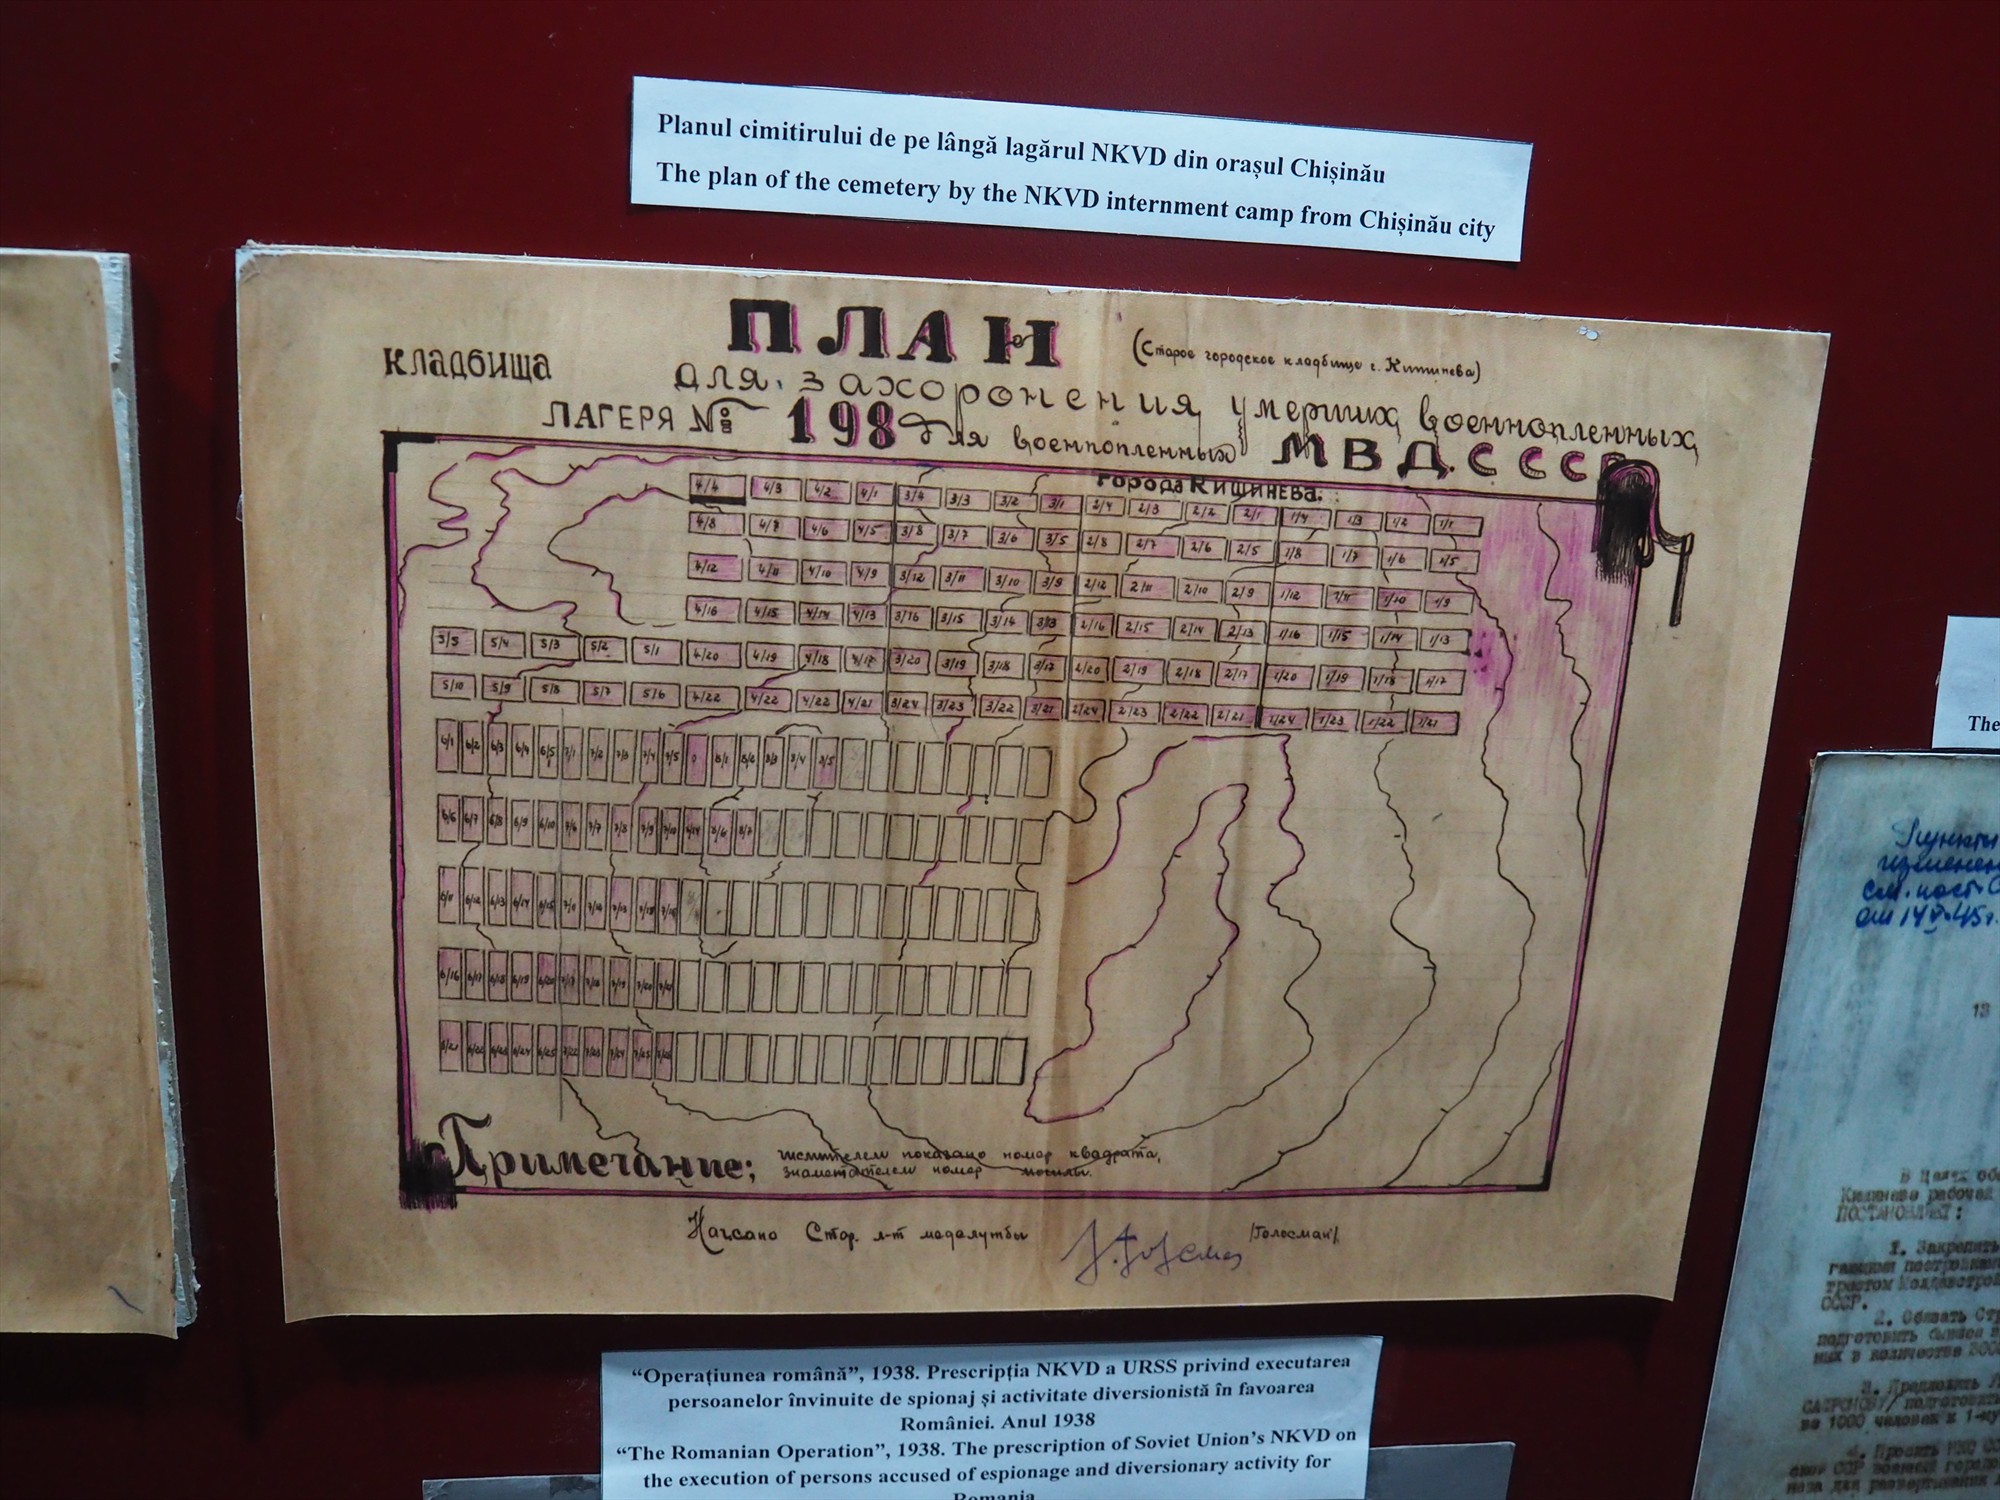 Planul cimitirului de pe lângă lagărul NKVD din orașul Chișinău
The plan of the cemetery by the NKVD internment camp from Chișinău city
ПЛАН
(Старое городское кладбище г. Кишинева)
кладбища
для захоронения умерших военнопленных
ЛАГЕРЯ № 198 для военнопленных МВД СССР
города Кишинева.
4/4 4/3 4/2 4/1 3/4 3/3 3/2 3/1 2/4 2/3 2/2 2/1 1/4 1/3 1/2 1/1
4/8 4/7 4/6 4/5 3/8 3/7 3/6 3/5 2/8 2/7 2/6 2/5 1/8 1/7 1/6 1/5
4/12 4/11 4/10 4/9 3/12 3/11 3/10 3/9 2/12 2/11 2/10 2/9 1/12 1/11 1/10 1/9
4/16 4/15 4/14 4/13 3/16 3/15 3/14 3/13 2/16 2/15 2/14 2/13 1/16 1/15 1/14 1/13
5/5 5/4 5/3 5/2 5/1 4/20 4/19 4/18 4/17 3/20 3/19 3/18 3/17 2/20 2/19 2/18 2/17 1/20 1/19 1/18 1/17
5/10 5/9 5/8 5/7 5/6 4/22 4/22 4/22 4/21 3/24 3/23 3/22 3/21 2/24 2/23 2/22 2/21 1/24 1/23 1/22 1/21
6/1 6/2 6/3 6/4 6/5 7/1 7/2 7/3 7/4 7/5 8/1 8/2 8/3 8/4 8/5
6/6 6/7 6/8 6/9 6/10 7/6 7/7 7/8 7/9 7/10 8/6 8/7
6/11 6/12 6/13 6/14 6/15 7/11 7/12 7/13
6/16 6/17 6/18 6/19 6/20 7/17 7/18 7/19 7/20 7/21
6/21 6/22 6/23 6/24 6/25 7/22 7/23 7/24 7/25
Примечание; числителем показано номер квадрата,
знаменателем номер могилы.
Начсано Стар. л-т медслужбы /Голосман/.
“Operațiunea română”, 1938. Prescripția NKVD a URSS privind executarea
persoanelor învinuite de spionaj și activitate diversionistă în favoarea
României. Anul 1938
“The Romanian Operation”, 1938. The prescription of Soviet Union’s NKVD on
the execution of persons accused of espionage and diversionary activity for
Romania
The
Пункты
изменен
см. пост. С
от 14 V-45г.
13
В целях об
Кишинева рабочей
ПОСТАНОВЛЯЕТ:
1. Закрепить
СССР.
2. Обязать Стр
подготовить
них в количестве
3. Предложить
во 1000 человек к 1-му
4. Просить